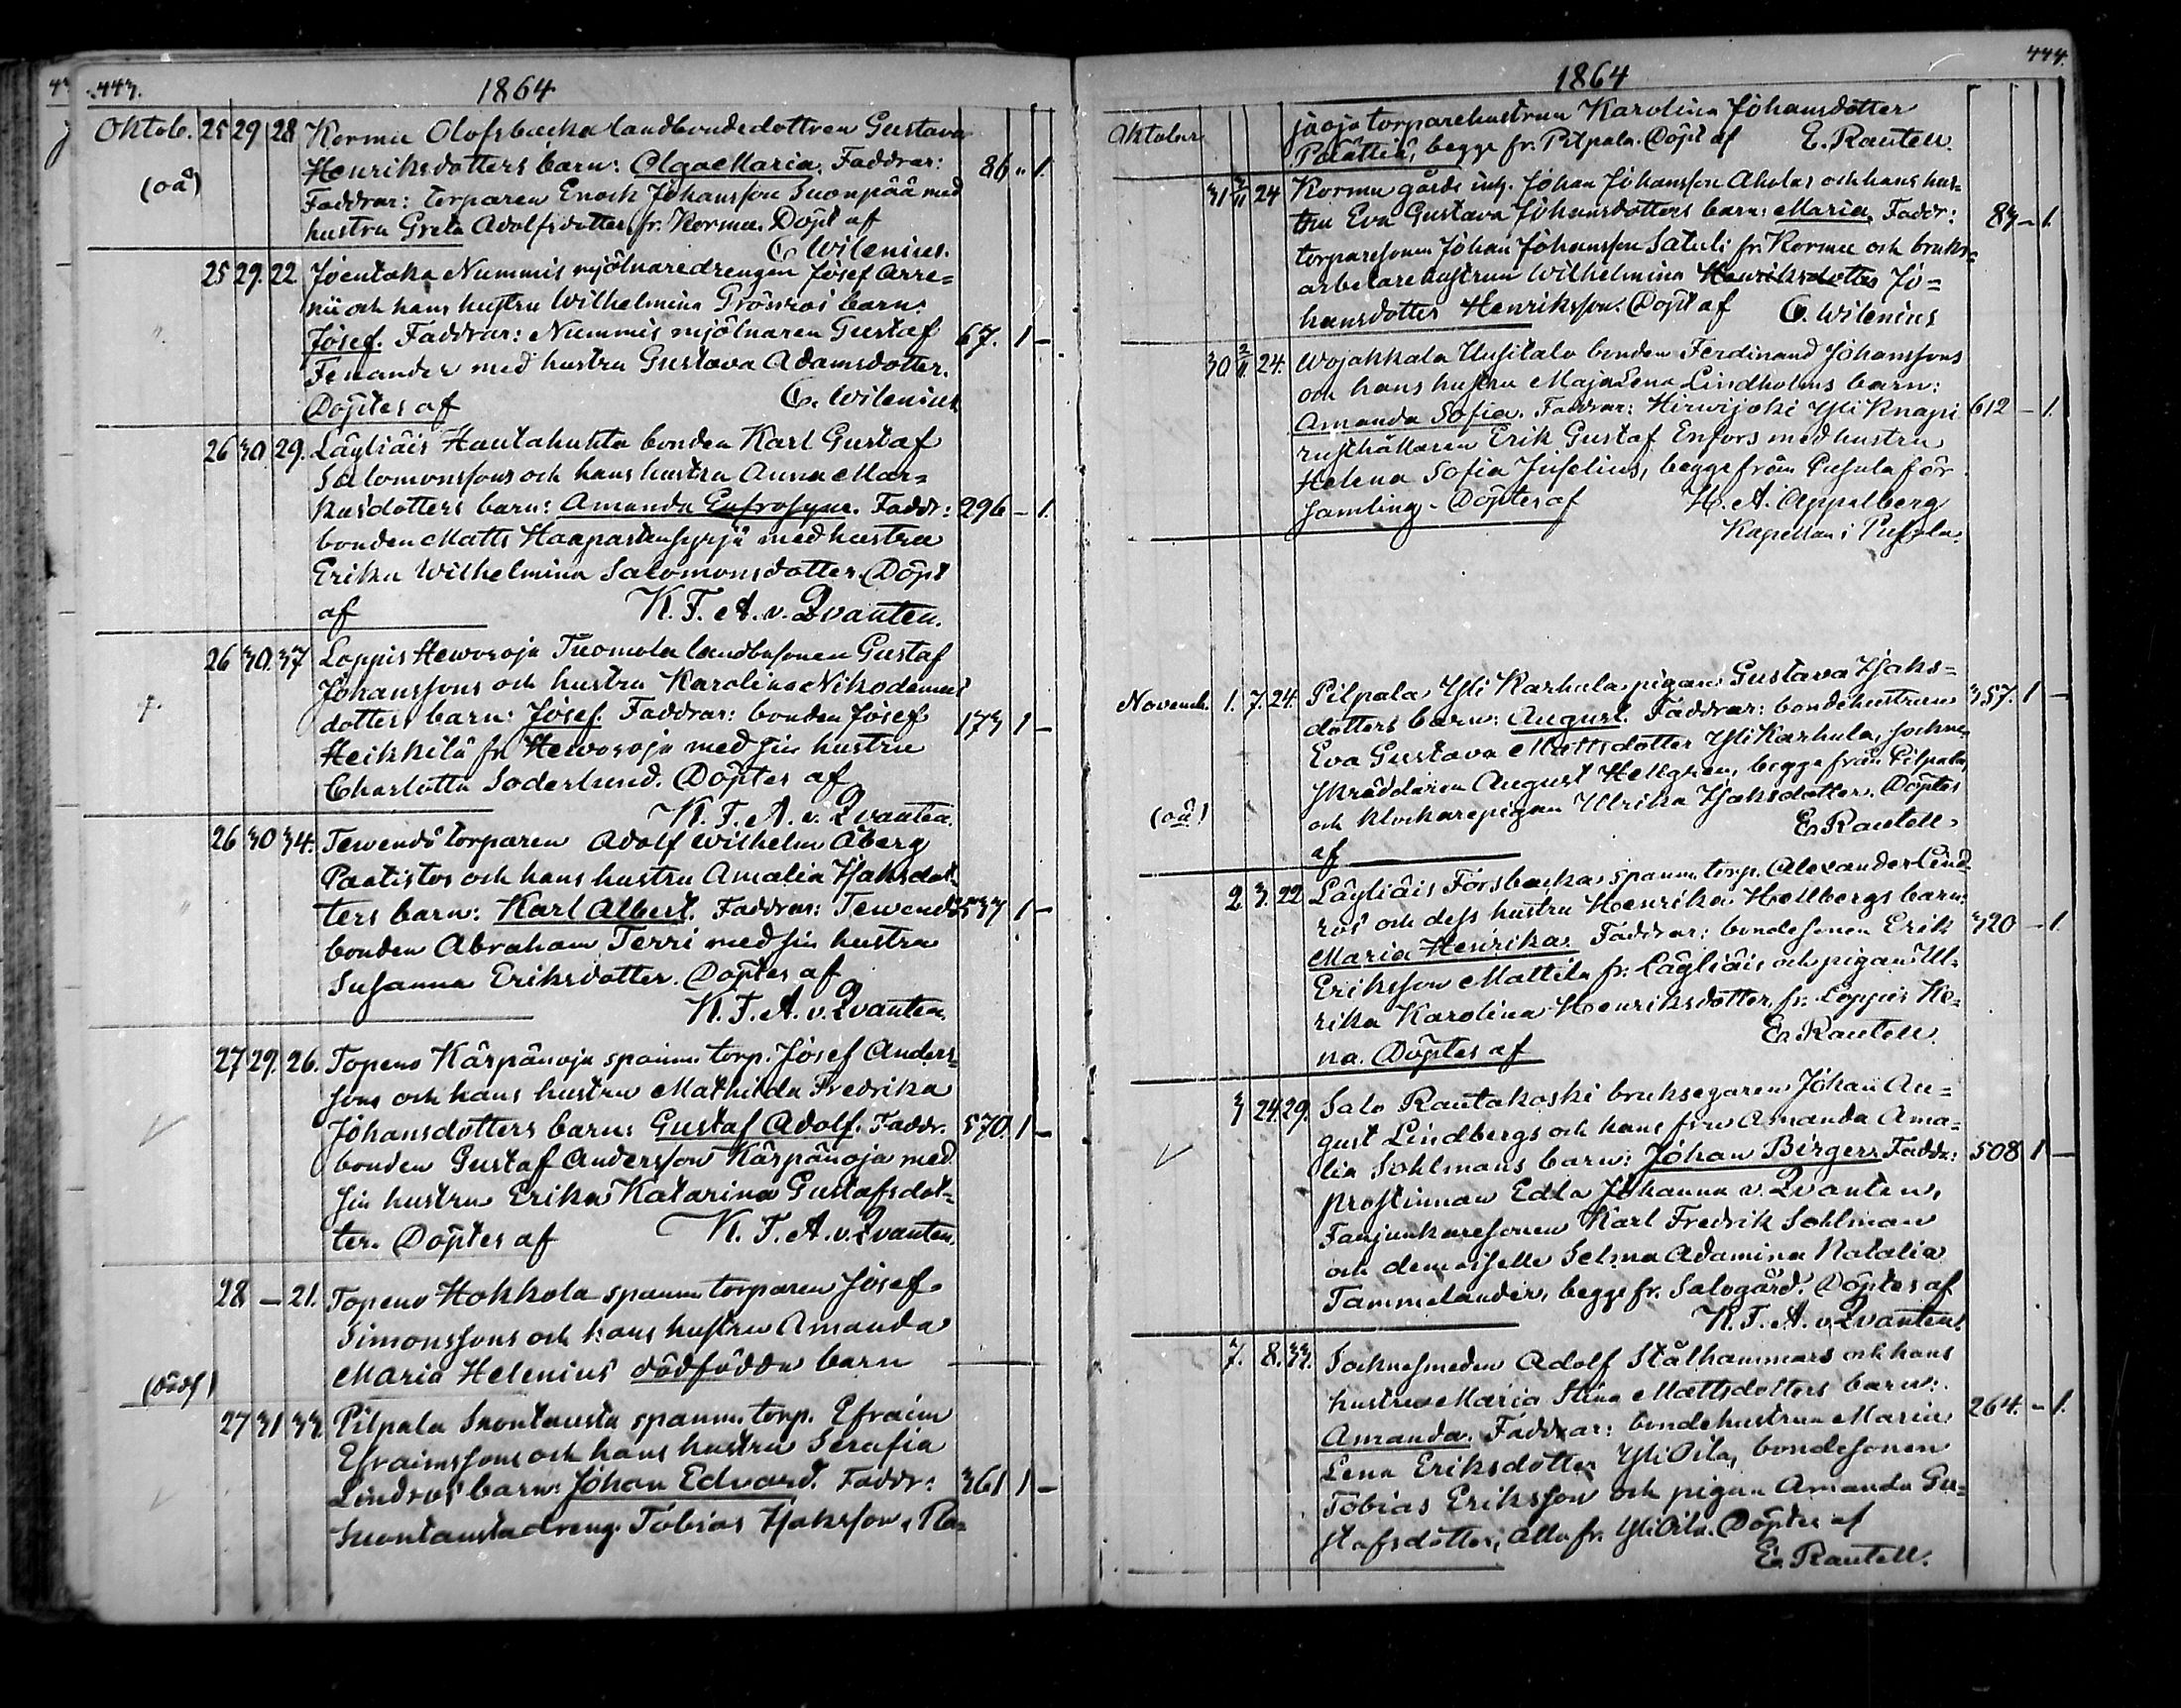 443.
1864
Oktob. 25 29 28 Kormu Olofsbacka landbondedottren Gustava
Henriksdotters barn: Olga Maria. Faddrar: 86 " 1.
(oä) Faddrar: torparen Enoch Johansson Suonpää med
hustru Greta Adolfsdotter, fr. Kormu. Döpt af
C. Wilenius.
25 29. 22 Joentaka Nummis mjölnaredrengen Josef Arre=
nii och hans hustru Wilhelmina Grönroos barn:
Josef. Faddrar: Nummis mjölnaren Gustaf 67. 1 –
Fenander med hustru Gustava Adamsdotter.
Döptes af C. Wilenius
26 30. 29. Läyliäis Hautahuhta bonden Karl Gustaf
Salomonssons och hans hustru Anna Mar=
kusdotters barn: Amanda Eufrosyne. Faddr: 296 – 1.
bonden Matts Haapastensyrjä med hustru
Erika Wilhelmina Salomonsdotter. Döpt
af K. F. A. v. Qvanten.
26 30. 37 Loppis Hevosoja Tuomola landbosonen Gustaf
Johanssons och hustru Karolina Nikodemus
dotters barn: Josef. Faddrar: bonden Josef 173 1 –
Heikkilä fr. Hevosoja med sin hustru
Charlotta Söderlund. Döptes af
K. F. A. v. Qvanten.
26 30 34. Tevendö torparen Adolf Wilhelm Åberg
Paatistos och hans hustru Amalia Isaksdot=
ters barn: Karl Albert. Faddrar: Tevendö 537 1 –
bonden Abraham Terri med sin hustru
Susanna Eriksdotter. Döptes af
K. F. A. v. Qvanten.
27 29. 26. Topeno Kärpänoja spanm. torp. Josef Anders=
sons och hans hustru Mathilda Fredrika
Johansdotters barn: Gustaf Adolf. Faddr. 570. 1 –
bonden Gustaf Andersson Kärpänoja med
sin hustru Erika Katarina Gustafsdot=
ter. Döptes af K. F. A. v. Qvanten.
28 – 21. Topeno Hokkola spanm torparen Josef
Simonssons och hans hustru Amanda
Maria Helenius dödfödda barn
(dödf)
27 31 33 Pilpala Suontausta spanm. torp. Efraim
Efraimssons och hans hustru Serafia
Lindros' barn: Johan Edvard. Faddr: 361 1 –
Suontausta dreng. Tobias Isaksson,
444.
1864
Oktober jaoja torparehustrun Karolina Johansdotter
begge fr. Pilpala. Döpt af E. Rautell.
31 3/11 24 Kormu gårds inh. Johan Johansson Aholas och hans hus=
tru Eva Gustava Johansdotters barn: Maria. Faddr: 83 – 1.
torparesonen Johan Johansson Satuli fr. Kormu och bruks=
arbetarehustrun Wilhelmina Henriksdotter Jo=
hansdotter Henriksson. Döpt af C. Wilenius
30 2/11. 24. Wojakkala Uusitalo bonden Ferdinand Johanssons
och hans hustru Maja Lena Lindholms barn:
Amanda Sofia. Faddrar: Hirvijoki Yli Knapi 612 – 1.
rusthållaren Erik Gustaf Enfors med hustru
Helena Sofia Juselius, begge från Pusula för
samling. Döptes af H. A. Appelberg
Kapellan i Pusula.
Novemb. 1. 7. 24. Pilpala Yli Karhula pigan Gustava Isaks=
dotters barn: August. Faddrar: bondehustrun 357. 1 –
Eva Gustava Mattsdotter Yli Karhula, sockne
skräddaren August Hellgren, begge från Pilpala,
(oä) och klockarepigan Ulrika Isaksdotter. Döptes
af E. Rautell.
2 3. 22 Läyliäis Forsbacka spanm. torp. Alexander Lind
ros' och dess hustru Henrika Hellbergs barn:
Maria Henrika. Faddrar: bondesonen Erik 320 – 1.
Eriksson Mattila fr. Läyliäis och pigan Ul=
rika Karolina Henriksdotter, fr. Loppis He=
na. Döptes af E. Rautell.
3 24. 29. Salo Rautakoski bruksegaren Johan Au=
gust Lindbergs och hans fru Amanda Ama=
lia Sohlmans barn: Johan Birger. Faddr: 508 1 –
prostinnan Edla Johanna v. Qvanten,
Fanjunkaresonen Karl Fredrik Sohlman
och demoiselle Selma Adamina Natalia
Tammelander, begge fr. Salogård. Döptes af
K. F. A. v. Qvanten.
7. 8. 33. Socknesmeden Adolf Stålhammars och hans
hustru Maria Stina Mattsdotters barn:
Amanda. Faddrar: bondehustrun Maria 264. – 1.
Lena Eriksdotter Yli Oila, bondesonen
Tobias Eriksson och pigan Amanda Gu=
stafsdotter, alla fr. Yli Oila. Döptes af
E. Rautell.